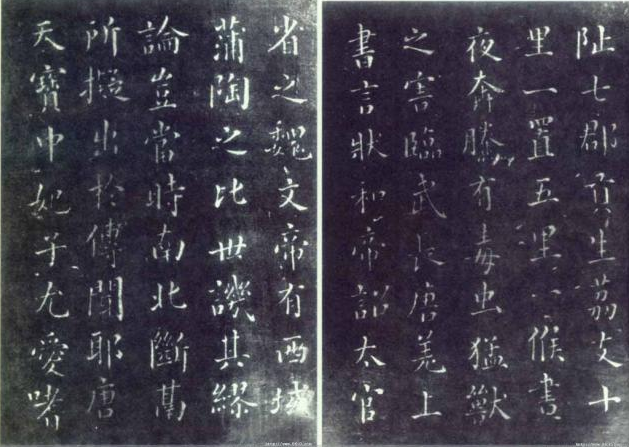 阯七郡貢生荔支十
里一置五里一候晝
夜奔騰有毒虫猛獸
之害臨武長唐羌上
書言狀和帝詔太官
省之魏文帝有西域
蒲陶之比世譏其繆
論豈當時南北斷鬲
所擬出於傳聞耶唐
天寶中妃子尤愛嗜